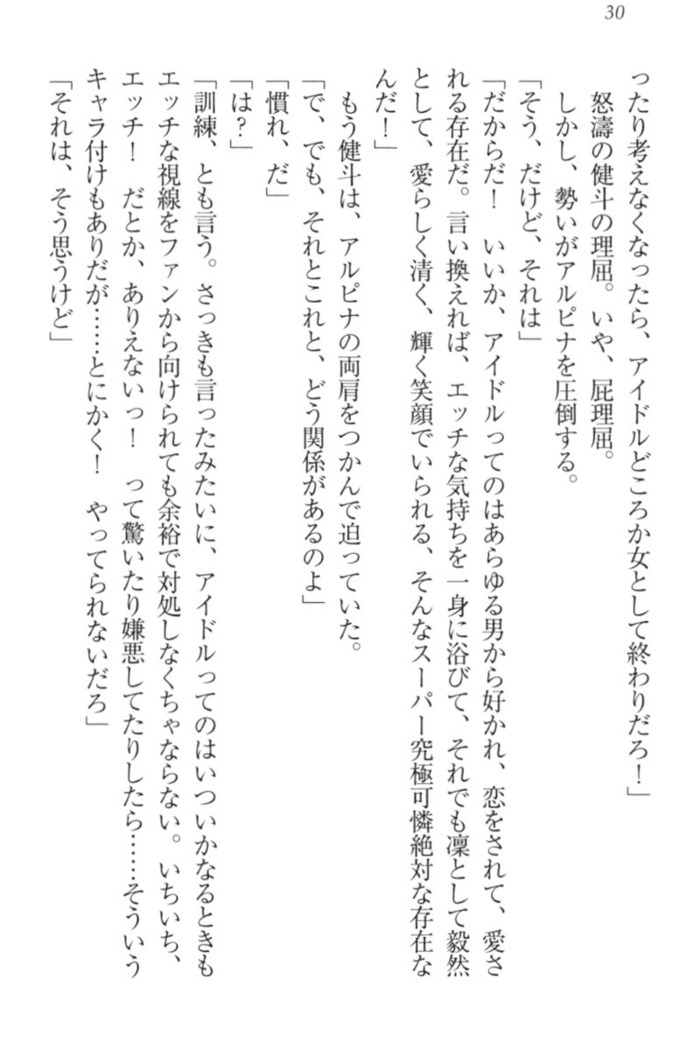 30
ったり考えなくなったら、アイドルどころか女として終わりだろ！」
　怒濤の健斗の理屈。いや、屁理屈。
　しかし、勢いがアルピナを圧倒する。
「そう、だけど、それは」
「だからだ！　いいか、アイドルってのはあらゆる男から好かれ、恋をされて、愛さ
れる存在だ。言い換えれば、エッチな気持ちを一身に浴びて、それでも凛として毅然
として、愛らしく清く、輝く笑顔でいられる、そんなスーパー究極可憐絶対な存在な
んだ！」
　もう健斗は、アルピナの両肩をつかんで迫っていた。
「で、でも、それとこれと、どう関係があるのよ」
「慣れ、だ」
「は？」
「訓練、とも言う。さっきも言ったみたいに、アイドルってのはいついかなるときも
エッチな視線をファンから向けられても余裕で対処しなくちゃならない。いちいち、
エッチ！　だとか、ありえないっ！　って驚いたり嫌悪してたりしたら……そういう
キャラ付けもありだが……とにかく！　やってられないだろ」
「それは、そう思うけど」